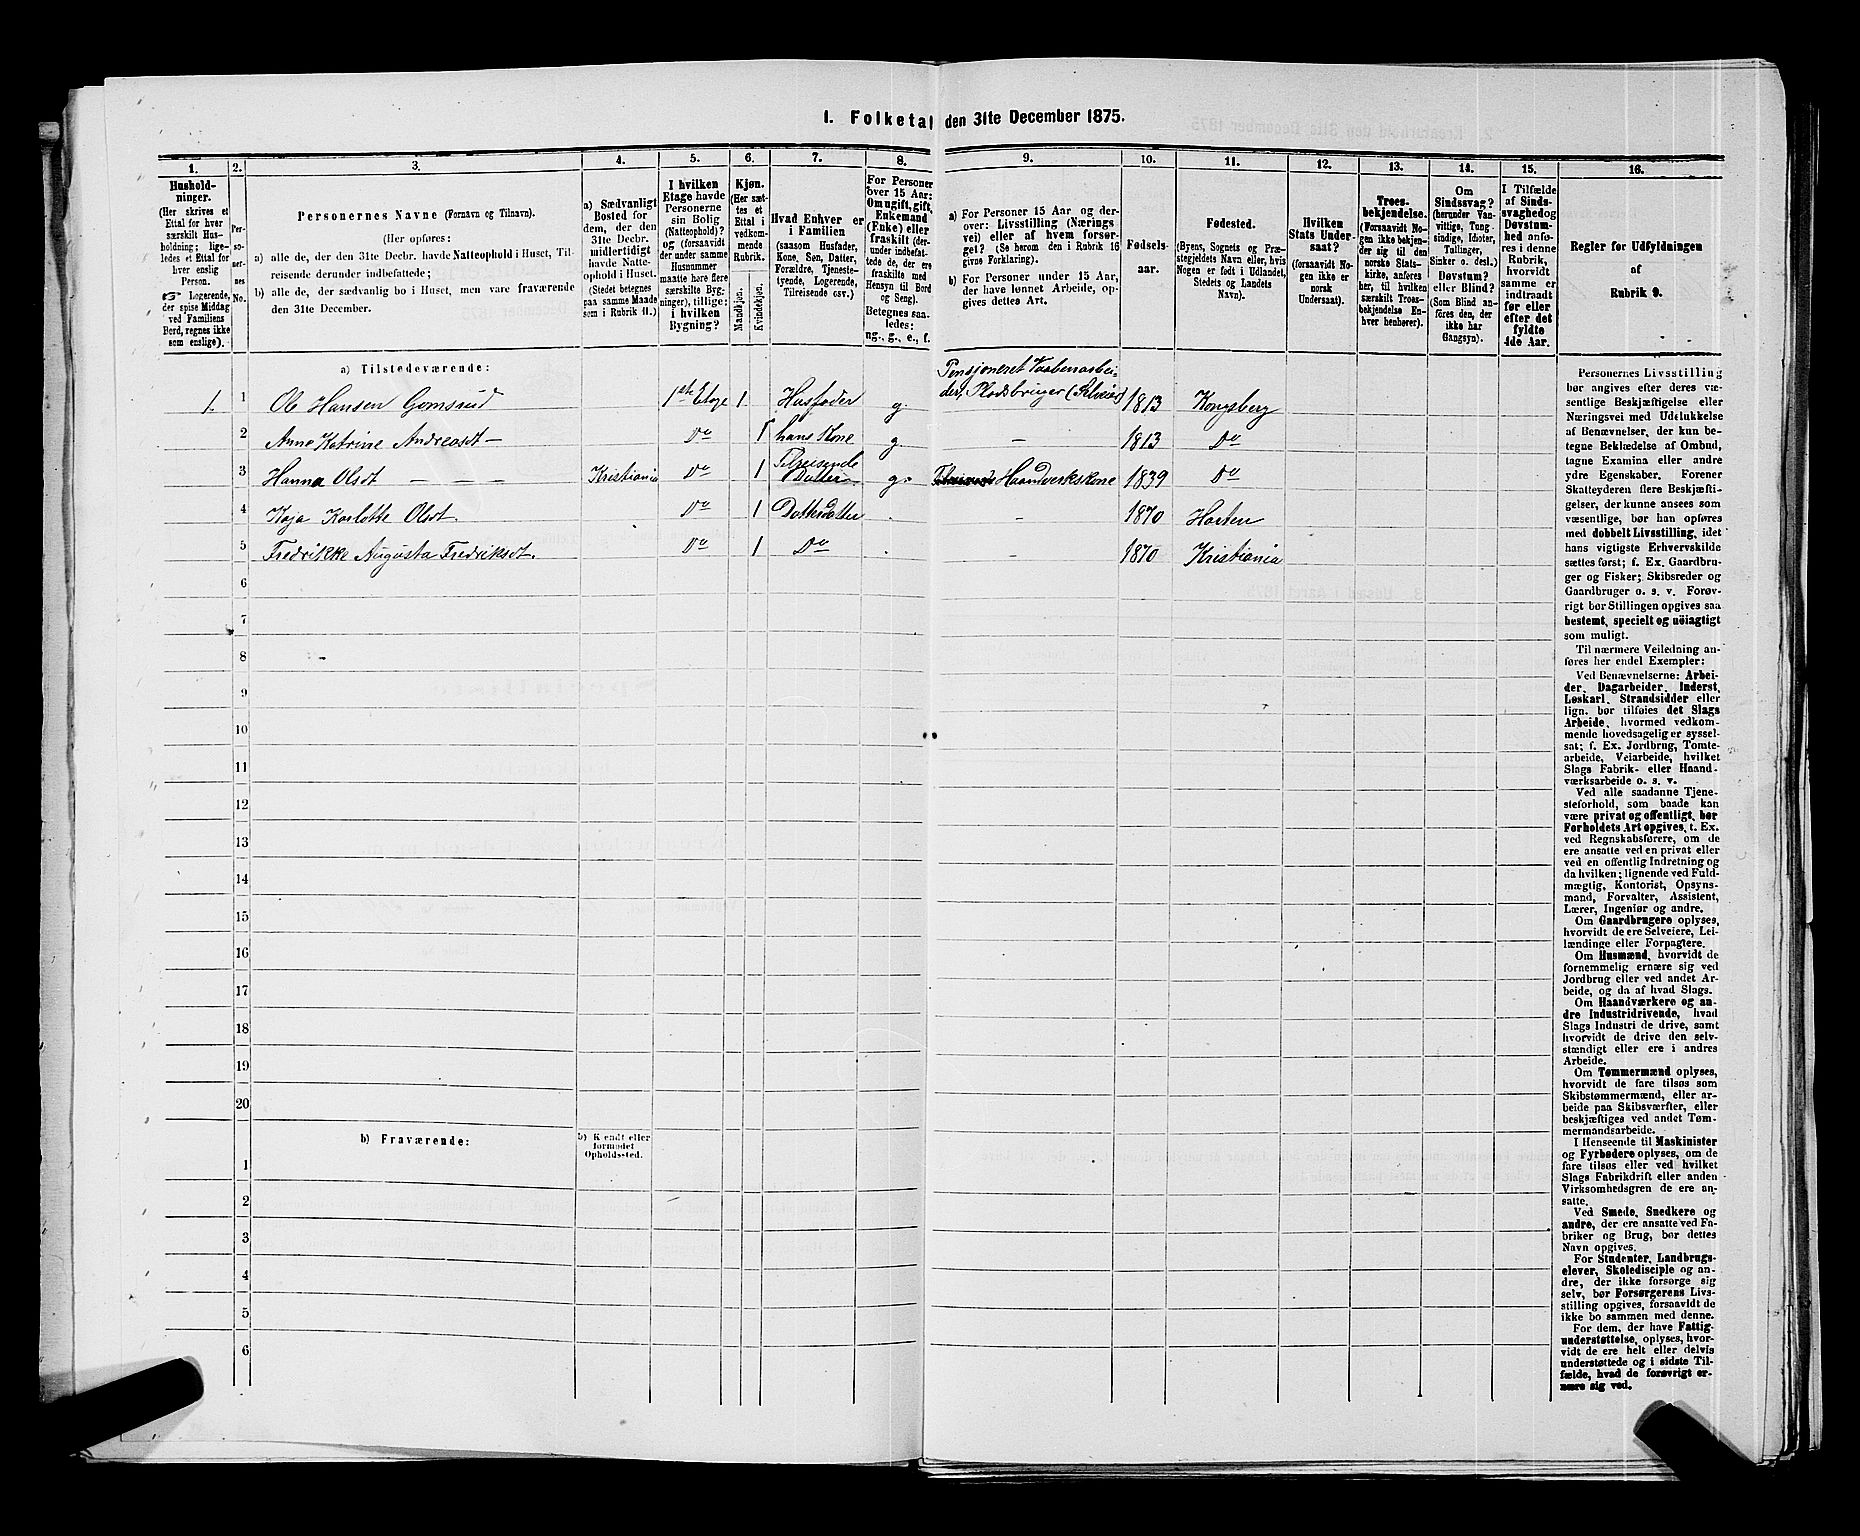 1. Folketal den 31te December 1875.
1. 2. 3. 4. 5. 6. 7. 8. 9. 10. 11. 12. 13. 14. 15. 16.
Hushold-
ninger.
(Her skrives et
Ettal for hver
særskilt Hus-
holdning; lige-
ledes et Ettal for
hver enslig
Person.
☞ Logerende,
der spise Middag
ved Familiens
Bord, regnes ikke
som enslige).
Per-
so-
ner-
nes
No.
Personernes Navne (Fornavn og Tilnavn).
(Her opføres:
a) alle de, der den 31te Decbr. havde Natteophold i Huset, Til-
reisende derunder indbefattede;
b) alle de, der sædvanlig bo i Huset, men vare fraværende
den 31te December.
a) Sædvanligt
Bosted for
dem, der den
31te Decbr.
midlertidigt
havde Natte-
ophold i Huset.
(Stedet betegnes
paa samme Maade
som i Rubrik 11.)
I hvilken
Etage havde
Personerne
sin Bolig
(Natteophold)?
og (forsaavidt
der under samme
Husnummer
maatte høre flere
særskilte Byg-
ninger), tillige:
i hvilken
Bygning?
Kjøn.
(Her sæt-
tes et
Ettal i
vedkom-
mende
Rubrik.
Mandkjøn.
Kvindekjøn.
Hvad Enhver er
i Familien
(saasom Husfader,
Kone, Søn, Datter,
Forældre, Tjeneste-
tyende, Logerende,
Tilreisende osv.)
For Personer
over 15 Aar:
Om ugift, gift,
Enkemand
(Enke) eller
fraskilt (der-
under indbefat-
tede de, der ere
fraskilte med
Hensyn til Bord
og Seng).
Betegnes saa-
ledes:
ug., g., e., f.
a) For Personer 15 Aar og der-
over: Livsstilling (Nærings
vei) eller af hvem forsør-
get? (Se herom den i Rubrik 16
givne Forklaring).
b) For Personer under 15 Aar,
der have lønnet Arbeide, op-
gives dettes Art.
Fødsels-
aar.
Fødested.
(Byens, Sognets og Præ-
stegjeldets Navn eller, hvis
Nogen er født i Udlandet,
Stedets og Landets
Navn).
Hvilken
Stats Under-
saat?
(forsaavidt No-
gen ikke er
norsk
Undersaat).
Troes-
bekjendelse.
(Forsaavidt No-
gen ikke bekjen-
der sig til den
norske Stats-
kirke, anføres
her, til hvilken
særskilt Troes-
bekjendelse En-
hver henhører).
Om
Sindssvag?
(herunder Van-
vittige, Tung-
sindige, Idioter,
Tullinger,
Sinker o. desl.)
Døvstum?
eller Blind?
(Som Blind an-
føres den, der
ikke har
Gangsyn).
I Tilfælde
af Sinds-
svaghed og
Døvstum-
hed anfø-
res i denne
Rubrik,
hvorvidt
samme er
indtraadt
før eller
efter det
fyldte
4de Aar.
Regler for Udfyldningen
af
Rubrik 9.
a) Tilstedeværende:
1. 1 Ole Hansen Gomsrud 1ste Etage 1 Husfader g. Pensjoneret Vaabenarbei-
der, Pladsbruger (Selveier) 1813 Kongsberg
2 Anne Katrine Andreasdt – Do 1 hans Kone g – 1813 Do
3 Hanna Olsdt – – – Kristiania Do 1 Tilreisende
Datter g. Haandverkskone 1839 Do
4 Kaja Karlotte Olsdt. Do 1 Datterdatter . – 1870 Horten
5 Fredrikke Augusta Fredriksdt. Do 1 Do . – 1870 Kristiania
6
7
8
9
10
11
12
13
14
15
16
17
18
19
20
b) Fraværende: b) Kjendt eller
formodet
Opholdssted.
1
2
3
4
5
6
Personernes Livsstilling
bør angives efter deres væ-
sentlige Beskjæftigelse eller
Næringsvei med Udelukkelse
af Benævnelser, der kun be-
tegne Beklædelse af Ombud,
tagne Examina eller andre
ydre Egenskaber. Forener
Skatteyderen flere Beskjæfti-
gelser, der kunne ansees som
væsentlige, bør han opføres
med dobbelt Livsstilling, idet
hans vigtigste Erhvervskilde
sættes først; f. Ex. Gaardbru-
ger og Fisker; Skibsreder og
Gaardbruger o. s. v. Forøv-
rigt bør Stillingen opgives saa
bestemt, specielt og nöiagtigt
som muligt.
Til nærmere Veiledning an-
føres her endel Exempler:
Ved Benævnelserne: Arbei-
der, Dagarbeider, Inderst,
Løskarl, Strandsidder eller
lign. bør tilføies det Slags
Arbeide, hvormed vedkom-
mende hovedsagelig er syssel-
sat; f. Ex. Jordbrug, Tomte-
arbeide, Veiarbeide, hvilket
Slags Fabrik- eller Haand-
værksarbeide o. s. v.
Ved alle saadanne Tjene-
steforhold, som baade kan
være privat og offentligt, bør
Forholdets Art opgives, t. Ex.
ved Regnskabsførere, om de
ere ansatte ved en privat eller
ved en offentlig Indretning og
da hvilken; lignende ved Fuld-
mægtig, Kontorist, Opsyns-
mand, Forvalter, Assistent,
Lærer, Ingeniør og andre.
Om Gaardbrugere oplyses,
hvorvidt de ere Selveiere, Lei-
lændinge eller Forpagtere.
Om Husmænd, hvorvidt de
fornemmelig ernære sig ved
Jordbrug eller ved andet Ar-
beide, og da af hvad Slags.
Om Haandværkere og an-
dre Industridrivende, hvad
Slags Industri de drive, samt
hvorvidt de drive den selv-
stændigt eller ere i andres
Arbeide.
Om Tømmermænd oplyses,
hvorvidt de fare tilsøs som
Skibstømmermænd, eller ar-
beide paa Skibsværfter, eller
beskjæftiges ved andet Tøm-
mermandsarbeide.
I Henseende til Maskinister
og Fyrbødere oplyses, om de
fare tilsøs eller ved hvilket
Slags Fabrikdrift eller anden
Virksomhedsgren de ere an-
satte.
Ved Smede, Snedkere og
andre, der ere ansatte ved Fa-
briker og Brug, bør dettes
Navn opgives.
For Studenter, Landbrugs-
elever, Skoledisciple og an-
dre, der ikke forsørge sig
selv, bør Forsørgerens Livs-
stilling opgives, forsaavidt de
ikke bo sammen med denne.
For dem, der have Fattig-
understøttelse, oplyses, hvor-
vidt de ere helt eller delvis
understøttede og i sidste Til-
fælde, hvad de forøvrigt er-
nære sig ved.